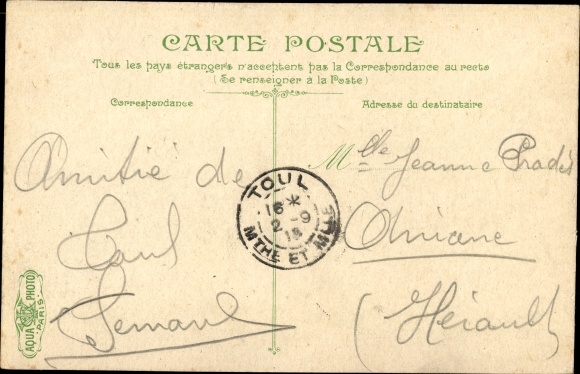 CARTE POSTALE
Tous les pays étrangers n'acceptent pas la Correspondance au recto
(Se renseigner à la Poste)
Correspondance
Adresse du destinataire
Amitié de
Paul
Mlle Jeanne Prades
Aniane
(Hérault)
TOUL
16 *
2 - 9
MTHE ET MLLE
AQUA PHOTO
PARIS